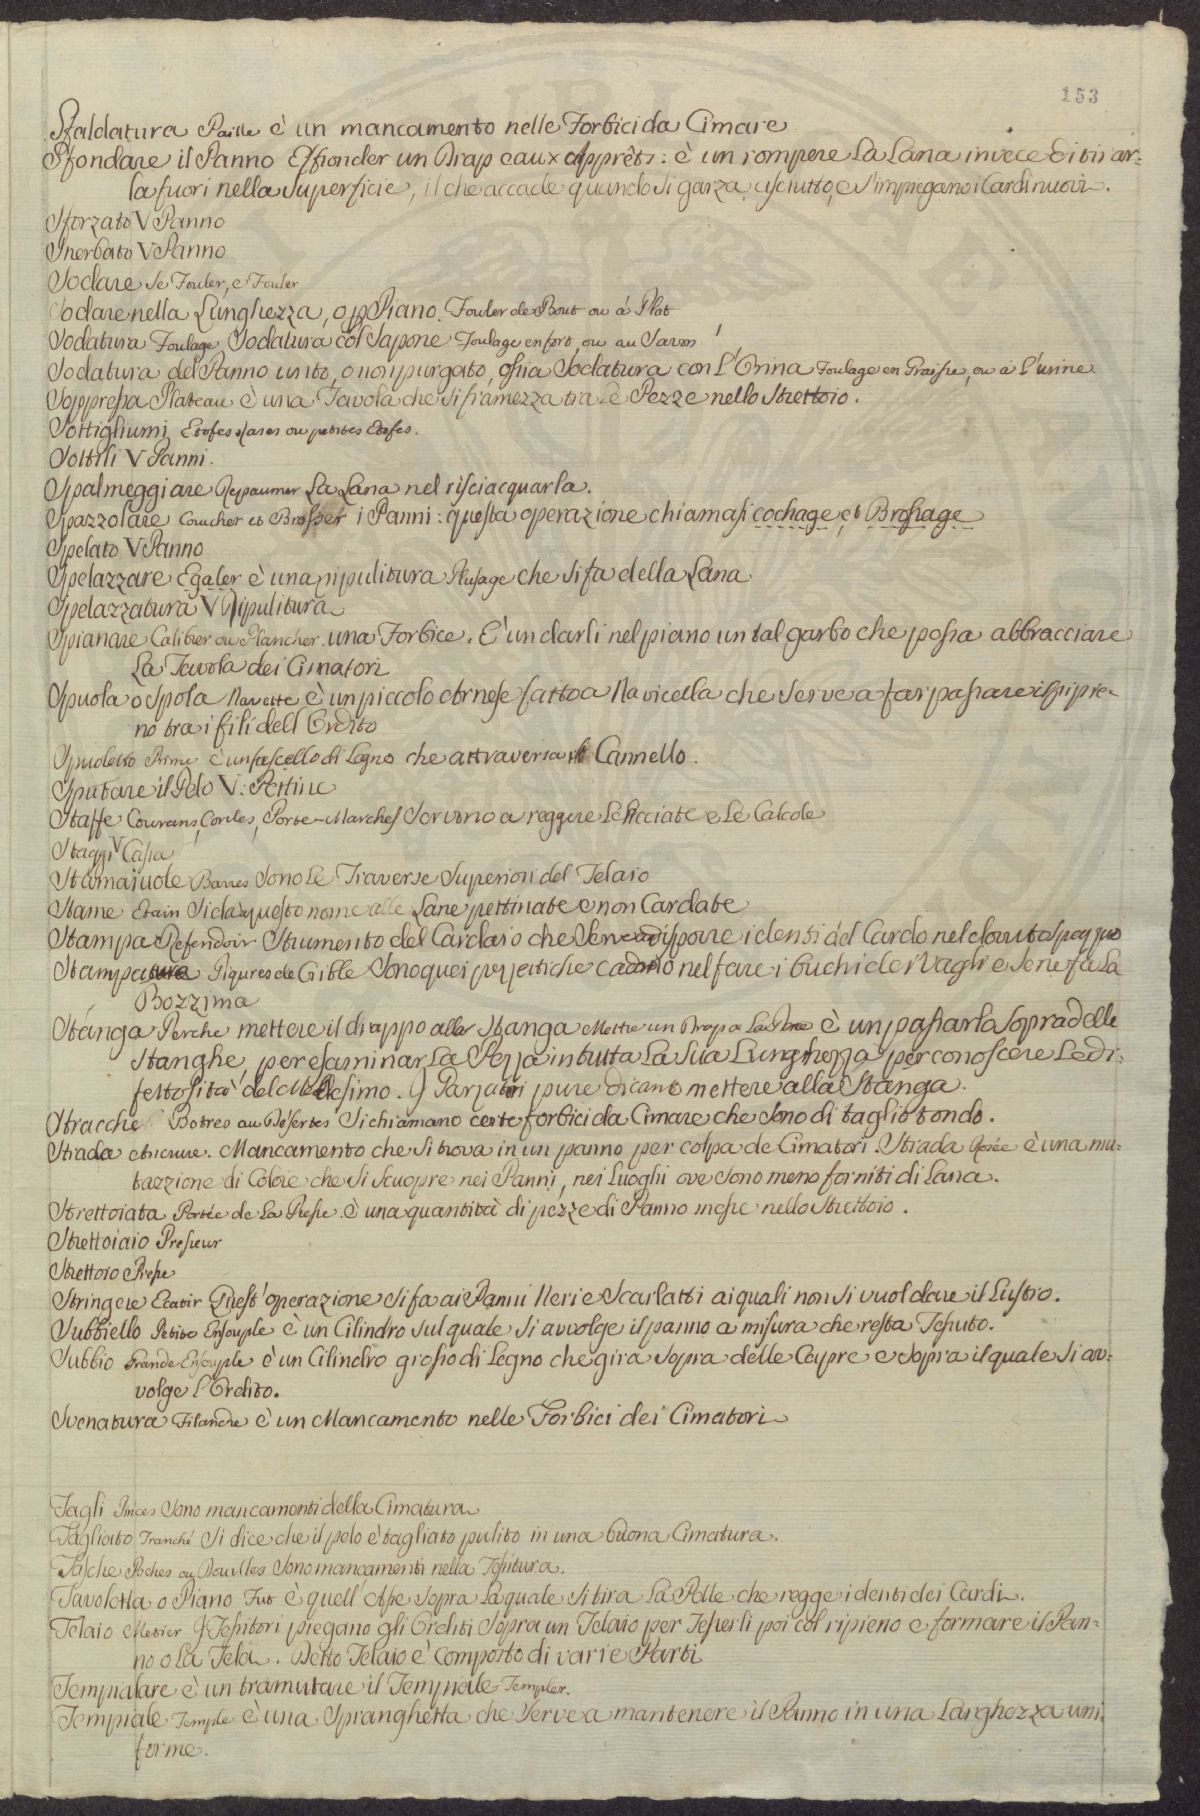 153
Sfaldatura Paille è un mancamento nelle Forbici da Cimare
Sfondare il Panno Effronder un Drap eaux Apprêts: è un rompere la Lana invece di tirar=
la fuori nella Superficie, il che accade quando si garza asciutto, e s'impiegano i Cardi nuovi.
Sforzato V Panno
Snerbato V Panno
Sodare Se Fouler, e Fouler
Sodare nella Lunghezza, o p Piano. Fouler de Bout ou à Plat
Sodatura Foulage, Sodatura col Sapone Foulage en fort, ou au Savon
Sodatura del Panno unto, o non purgato, ossia Sodatura con l'Orina Foulage en Graisse, ou à l'urine
Soppressa Plateau è una Tavola che si framezza tra le Pezze nello Strettoio.
Sottigliumi Etofes rases ou petites Etofes.
Sottili V Panni.
Spalmeggiare Repaumer La Lana nel risciacquarla.
Spazzolare Coucher et Brosser i Panni: questa operazione chiamasi cochage et Brossage
Spelato V Panno
Spelazzare Egaler è una ripulitura Plusage che si fa della Lana
Spelazzatura V Ripulitura
Spianare Calibrer ou Plancher una Forbice. E' un darli nel piano un tal garbo che possa abbracciare
La Tavola dei Cimatori
Spuola o Spola Navette è un piccolo Arnese fatto a Navicella che serve a far passare il ripie-
no tra i fili dell'Ordito
Spuoletto Brime è un fuscello di Legno che attraversa il Cannello.
Sputare il Pelo V: Pettine
Staffe Courans, Cordes, Porte-Marches Servono a reggere le Licciate e Le Calcole
Staggi V Cassa
Stamajuole Barres Sono Le Traverse Superiori del Telaio
Stame Etain Si da questo nome alle Lane pettinate e non Cardate
Stampa Refendoir Strumento del Cardaio che Serve a disporre i denti del Cardo nel dovuto spazzio
Stampature Piqures de Crible Sono quei pezzetti che cadono nel fare i buchi dei Vagli e se ne fa La
Bozzima
Stanga Perche mettere il drappo alla Stanga Mettre un Drap a La Perche è un passarlo sopra delle
Stanghe, per esaminar La Pezza in tutta La sua Lunghezza per conoscere Le di-
fettosità del Medesimo. I Garzatori pure dicono mettere alla Stanga.
Stracche Botres ou Désertes Si chiamano certe forbici da Cimare che sono di taglio tondo.
Strada Ancrure. Mancamento che si trova in un panno per colpa de Cimatori. Strada Rosée è una mu=
tazzione di Colore che si scuopre nei Panni, nei Luoghi ove sono meno forniti di Lana.
Strettoiata Portée de La Presse. è una quantità di pezze di Panno messe nello Strettoio.
Strettoiaio Presseur
Strettoio Presse
Stringere Ecatir Quest'operazione si fa ai Panni Neri e Scarlatti ai quali non si vuol dare il Lustro.
Subbiello Petite Ensouple è un Cilindro sul quale si avvolge il panno a misura che resta Tessuto.
Subbio Grande Ensouple è un Cilindro grosso di Legno che gira sopra delle Capre e sopra il quale si av=
volge l'Ordito.
Svenatura Filandre è un Mancamento nelle Forbici dei Cimatori
Tagli Pinces Sono mancamenti della Cimatura
Tagliato Tranché Si dice che il pelo è tagliato pulito in una buona Cimatura.
Tasche Poches ou Bouilles Sono mancamenti nella Tessitura.
Tavoletta o Piano Fut è quell'Asse sopra La quale si tira La Pelle che regge i denti dei Cardi.
Telaio Metier I Tessitori piegano gli Orditi sopra un Telaio per Tesserli poi col ripieno e formare il Pan=
no o La Tela. Detto Telaio è composto di varie Parti
Tempialare è un tramutare il Tempiale Templer.
Tempiale Temple è una Spranghetta che Serve a mantenere il Panno in una Larghezza uni=
forme.